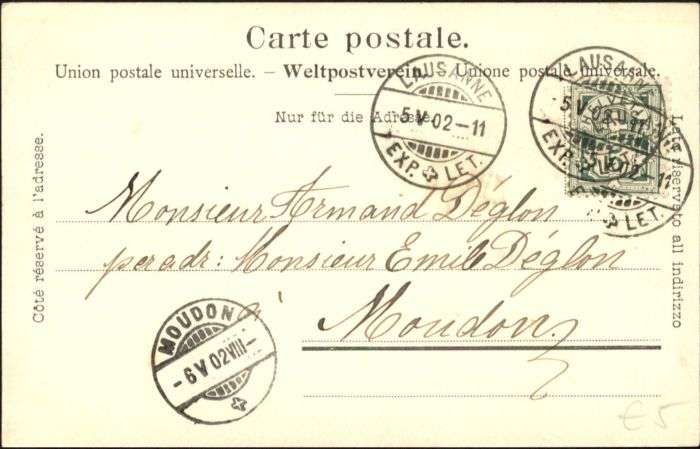 Carte postale.
Union postale universelle. — Weltpostverein. — Unione postale universale.
Nur für die Adresse.
Côté réservé à l'adresse.
Lato riservato all indirizzo
LAUSANNE
5 V 02–11
EXP. LET.
LAUSANNE
EXP. LET.
HELVETIA
Monsieur Armand Déglon
per adr: Monsieur Emile Déglon
à
Moudon
MOUDON
-6 V 02 VIII-
€5